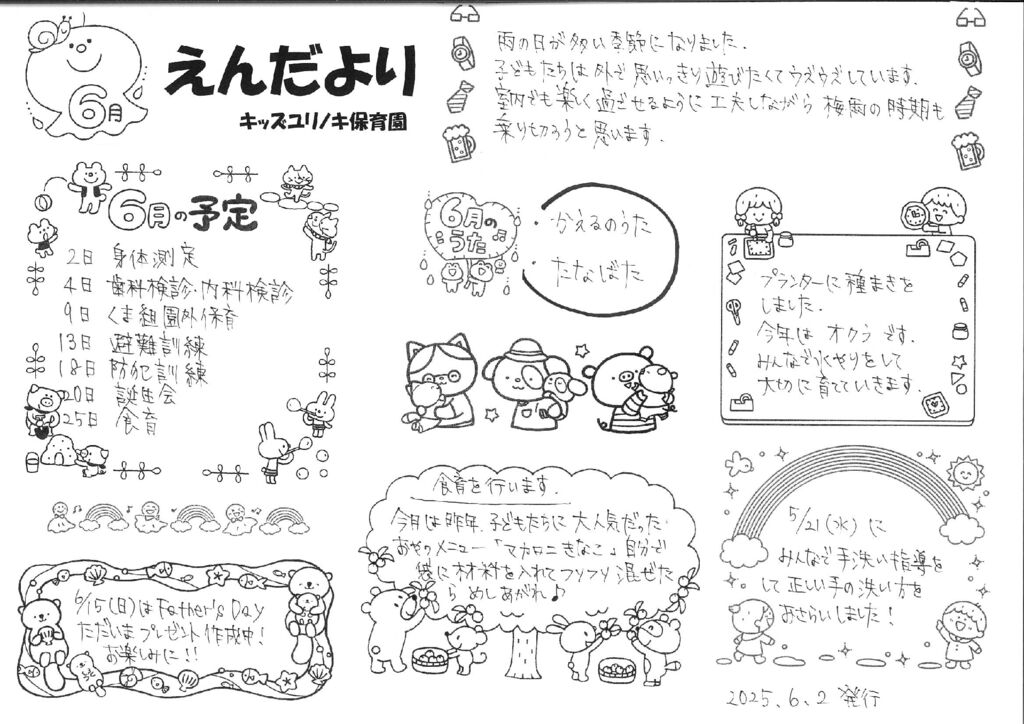 6月
えんだより
キッズユリノキ保育園
雨の日が多い季節になりました。
子どもたちは外で思いっきり遊びたくてウズウズしています。
室内でも楽しく過ごせるように工夫しながら梅雨の時期も
乗り切ろうと思います。
6月の予定
2日 身体測定
4日 歯科検診・内科検診
9日 くま組園外保育
13日 避難訓練
18日 防犯訓練
20日 誕生会
25日 食育
6月の
うた
・かえるのうた
・たなばた
プランターに種まきを
しました。
今年は オクラ です。
みんなで水やりをして
大切に育てていきます。
6/15(日)は Father's Day
ただいま プレゼント 作成中!
お楽しみに!!
食育を行います。
今月は昨年、子どもたちに大人気だった
おやつメニュー「マカロニきなこ」自分で
袋に材料を入れてフリフリ混ぜた
ら めしあがれ♪
5/21(水)に
みんなで手洗い指導を
して正しい手の洗い方を
おさらいしました!
2025.6.2 発行